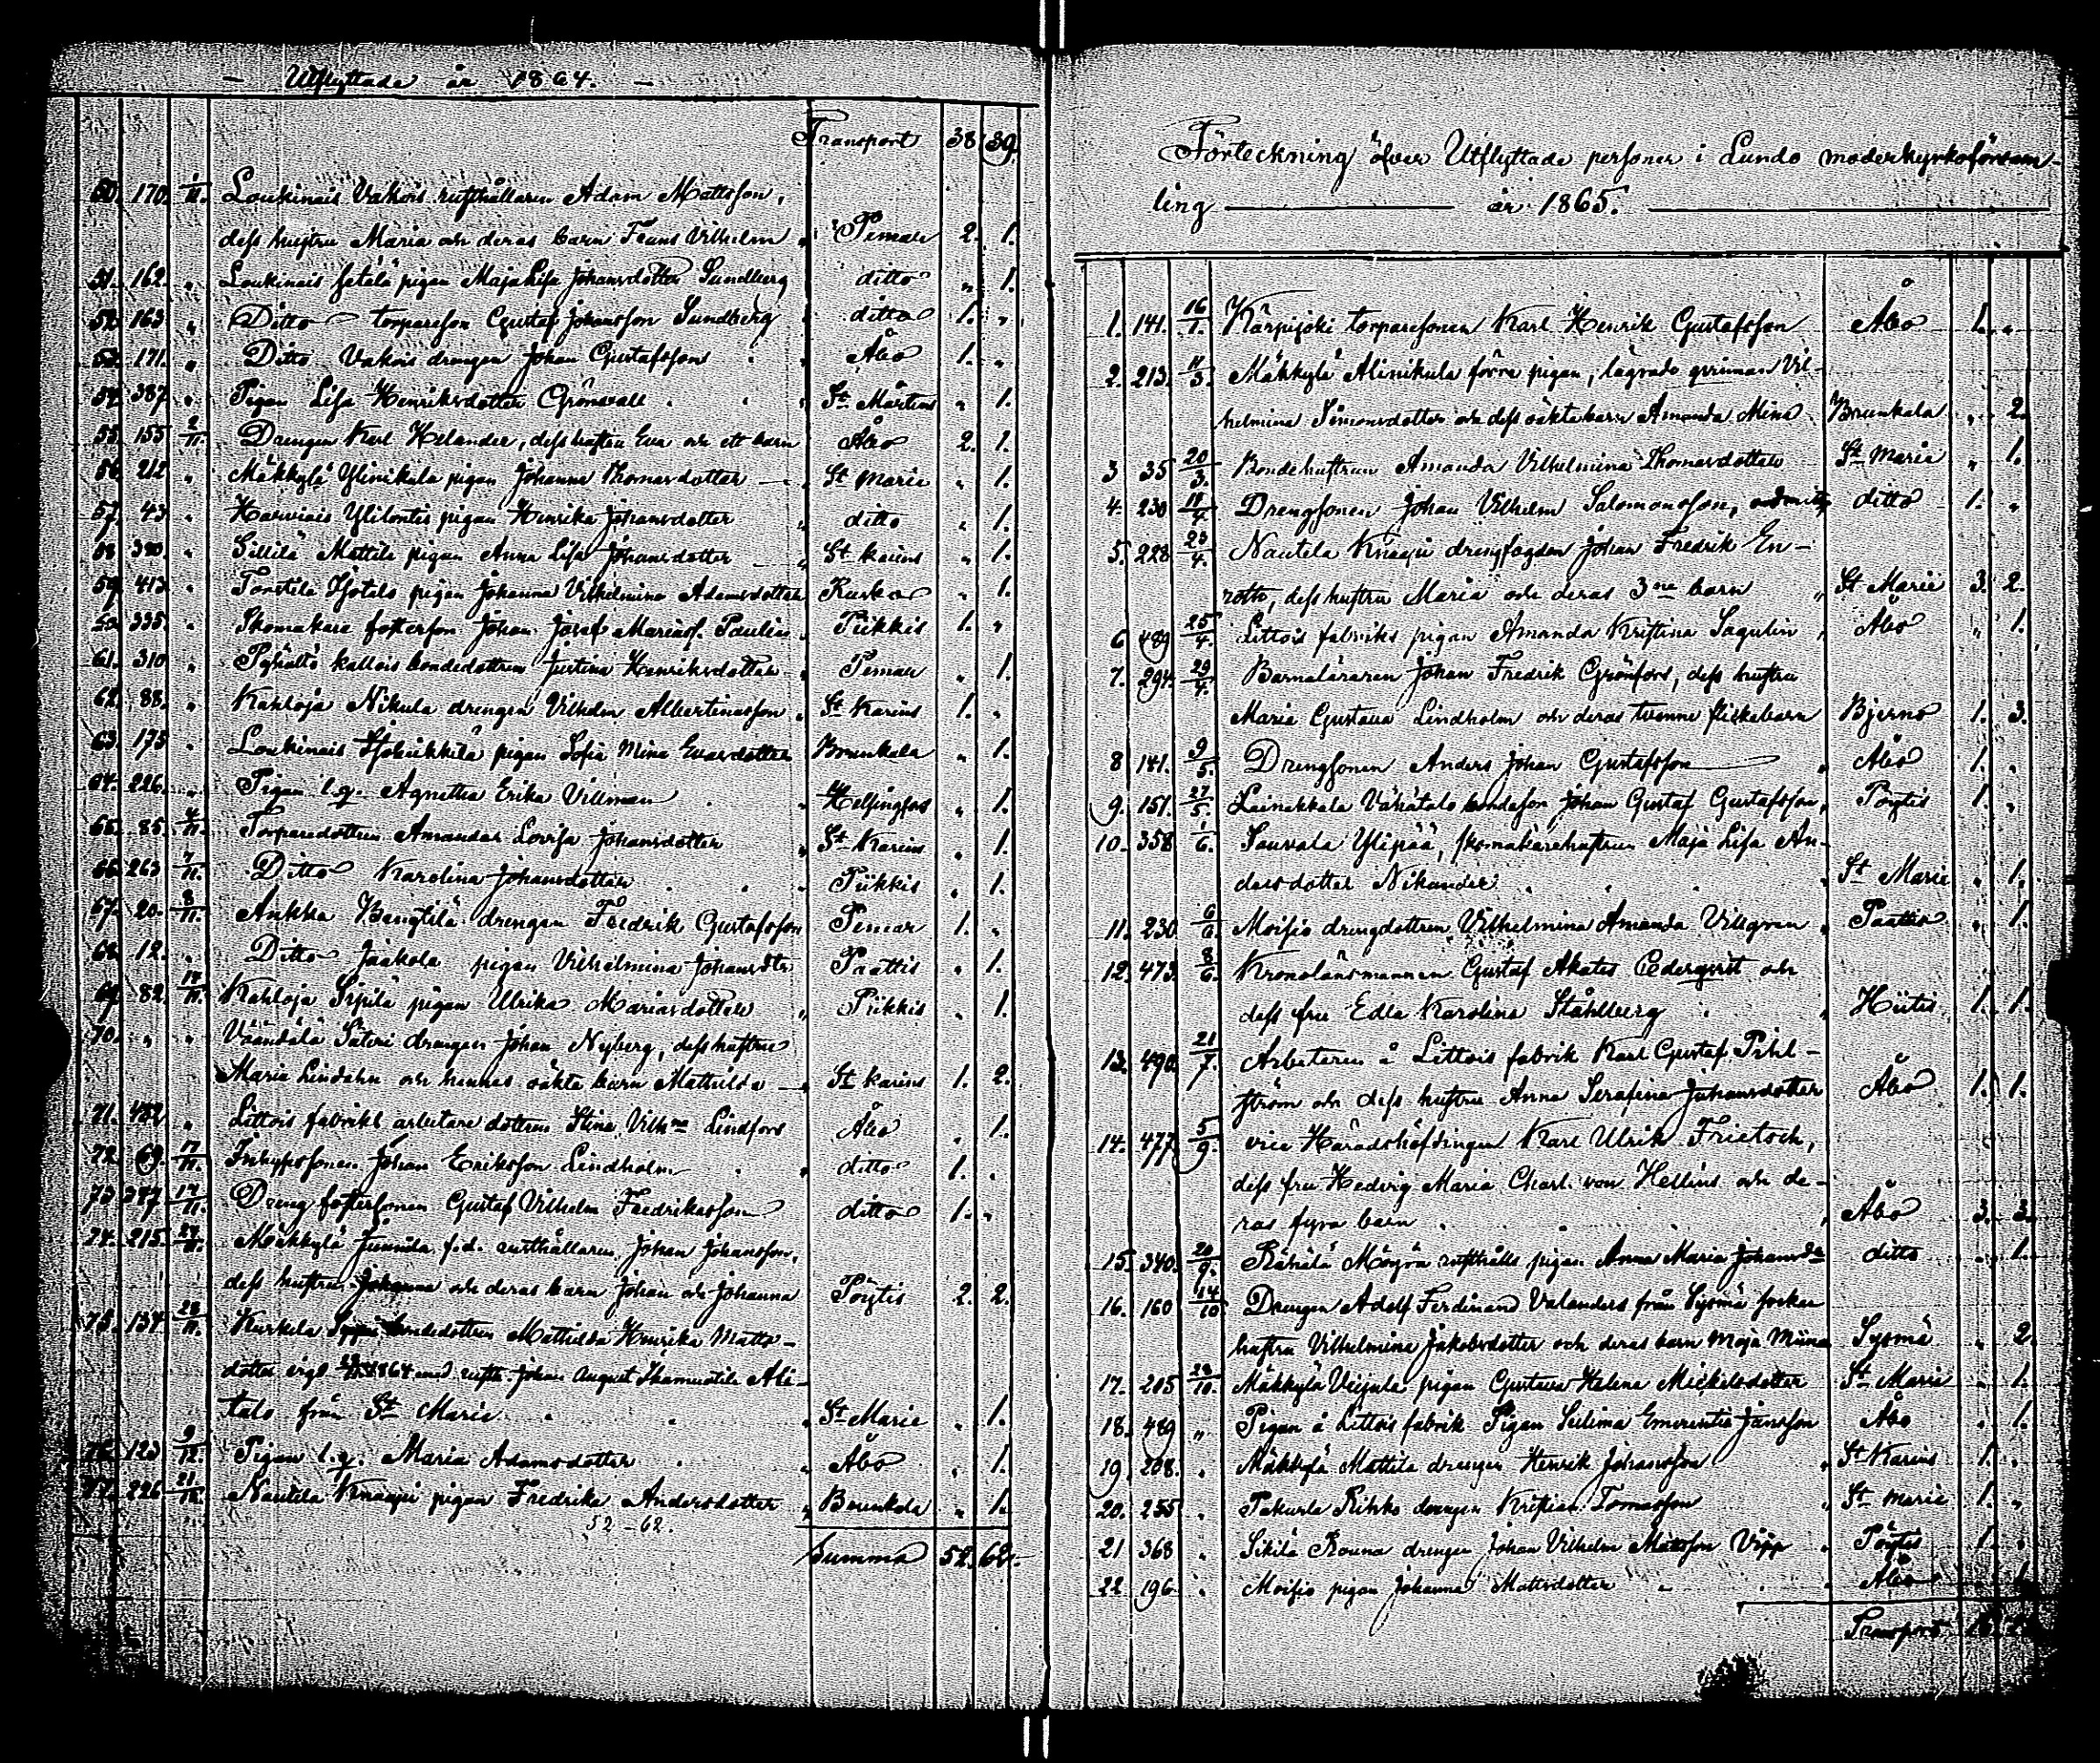 — Utflyttade år 1864. —
Transport 38 39.
50. 170. 1/11. Loukinais Vakois rusthållaren Adam Mattsson,
dess hustru Maria och deras barn Frans Vilhelm " Pemar 2. 1.
51. 162. " Loukinais pigan Maja Lisa Johansdotter Sundberg ditto " 1.
52. 163 " Ditto torpareson Gustaf Johansson Sundberg ditto 1. "
53. 171. " Ditto Vakois drengen Johan Gustafsson " Åbo 1. "
54. 387 " Pigan Lisa Henriksdotter Grönvall . . " St. Mårtens " 1.
55. 155 2/11. Drengen Karl Helander, dess hustru Eva och ett barn Åbo 2. 1.
56. 212 " Mäkkylä Ylinikula pigan Johanna Thomasdotter — " St Marie " 1.
57. 43 " Karviais Ylilontis pigan Henrika Johansdotter " ditto " 1.
58 380. " Sillilä Mattila pigan Anna Lisa Johansdotter " St Karins " 1.
59. 413. " Torstila pigan Johanna Vilhelmina Adamsdotter Rusko " 1.
60. 335. " Skomakare fosterson Johan Josef Mariasf. Paulin Piikkis 1. "
61. 310 " bondedottren Justina Henriksdotter " Pemar " 1.
62. 88. " Kahloja Nikula drengen Vilhelm Albertinasson " St Karins 1. "
63. 175 " Loukinais pigan Sofia Mina Evasdotter Brunkala " 1.
64. 226. " Pigan l.q. Agnetha Erika Villman . " Helsingfors " 1.
65. 85. 4/11. Torparedottren Amanda Lovisa Johansdotter " St Karins " 1.
66. 263 7/11. Ditto Karolina Johansdotter . . " Piikkis " 1.
67. 20. 8/11. Ankka Bengtilä drengen Fredrik Gustafsson Pemar 1. "
68. 12. " Ditto Jaakola pigan Vilhelmina Johansdtr Paattis " 1.
69. 82. 14/11. Kahloja Sipilä pigan Ulrika Mariasdotter " Piikkis " 1.
70. " " Väändälä Säteri drengen Johan Nyberg, dess hustru
Maria Lindahn och hennes oäkta barn Mathilda — " St Karins 1. 2.
71. 482 " Littois fabriks arbetare dottren Stina Vilhna Lindfors Åbo " 1.
72. 69. 17/11. Inhysessonen Johan Eriksson Lindholm . " ditto 1. "
73. 377 19/11. Dreng fostersonen Gustaf Vilhelm Fredriksson ditto 1. "
74. 215. 24/11. Mäkkylä Junnila f.d. rusthållaren Johan Johansson,
dess hustru Johanna och deras barn Johan och Johanna Pöytis 2. 2.
75. 134 28/11. Kurkela bondedottren Mathilda Henrika Matts-
dotter vigd 1864 med rusth. Johan August Ali-
talo från St Marie . . " St Marie " 1.
76. 123 9/12. Pigan l.q. Maria Adamsdotter . " Åbo " 1.
77. 226 21/12. Nautela Knaapi pigan Fredrika Andersdotter " Brunkala " 1.
52 – 62.
Summa 52. 62.
Förteckning öfver Utflyttade personer i Lundo moderkyrkoförsam-
ling — år 1865. —
1. 141. 16/1. Kärpijoki torparesonen Karl Henrik Gustafsson Åbo 1. "
2. 213. 11/3. Mäkkylä Alinikula förra pigan, lägrade qvinnan Vil-
helmina Simonsdotter och dess oäkta barn Amanda Mina Brunkala " 2.
3 35 20/3. Bondehustrun Amanda Vilhelmina Thomasdotter St Marie " 1.
4. 230 18/4. Drengsonen Johan Vilhelm Salomonsson, ditto 1. "
5. 228 23/4. Nautela Knaapi drengfogden Johan Fredrik En-
rotto, dess hustru Maria och deras 3ne barn " St Marie 3. 2.
6 489 25/4. Littois fabriks pigan Amanda Kristina Sagulin " Åbo " 1.
7. 294. 29/4. Barnaläraren Johan Fredrik Grönfors, dess hustru
Maria Gustava Lindholm och deras tvenne flickebarn Bjerno 1. 3.
8 141. 9/5. Drengsonen Anders Johan Gustafsson — " Åbo 1. "
9. 151. 27/5. Leinakkala Vähätalo bondeson Johan Gustaf Gustafsson, Pöytis 1. "
10. 358 1/6. Sauvala Ylipää, skomakarehustrun Maja Lisa An-
dersdotter Nikander . . . " St Marie " 1.
11. 230 6/6 Moisio drengdottren Vilhelmina Amanda Villgren " Paattis " 1.
12. 473. 8/6. Kronolänsmannen Gustaf Akates Cederqvist och
dess fru Edla Karolina Ståhlberg . " Hiitis 1. 1.
13. 490. 21/7. Arbetaren å Littois fabrik Karl Gustaf Pihl-
ström och dess hustru Anna Serafina Johansdotter Åbo 1. 1.
14. 477 5/9. vice Häradshöfdingen Karl Ulrik Frietsch,
dess fru Hedvig Maria Charl. von Hellens och de-
ras fyra barn . . . " Åbo 3. 3.
15. 340. 20/9. rusthålls pigan Anna Maria Johansdr ditto " 1.
16. 160 14/10 Drengen Adolf Ferdinand Valanders från Sysmä socken
hustru Vilhelmina Jakobsdotter och deras barn Maja Miina Sysmä " 2.
17. 205 28/10. Mäkkylä Veijula pigan Gustava Helena Mickelsdotter St Marie " 1.
18. 489 " Pigan å Littois fabrik Pigan Selima Emerentia Jansson Åbo " 1.
19 208. " Mäkkylä Mattila drengen Henrik Johansson " St Karins 1. "
20. 255 " Pakurla Rihko drengen Kristian Tomasson " St Marie 1. "
21 368 " Sikilä Rouna drengen Johan Vilhelm Mattsson Vipp " Pöytis 1. "
22. 196 " Moisio pigan Johanna Mattsdotter " . " Åbo " 1.
Transport